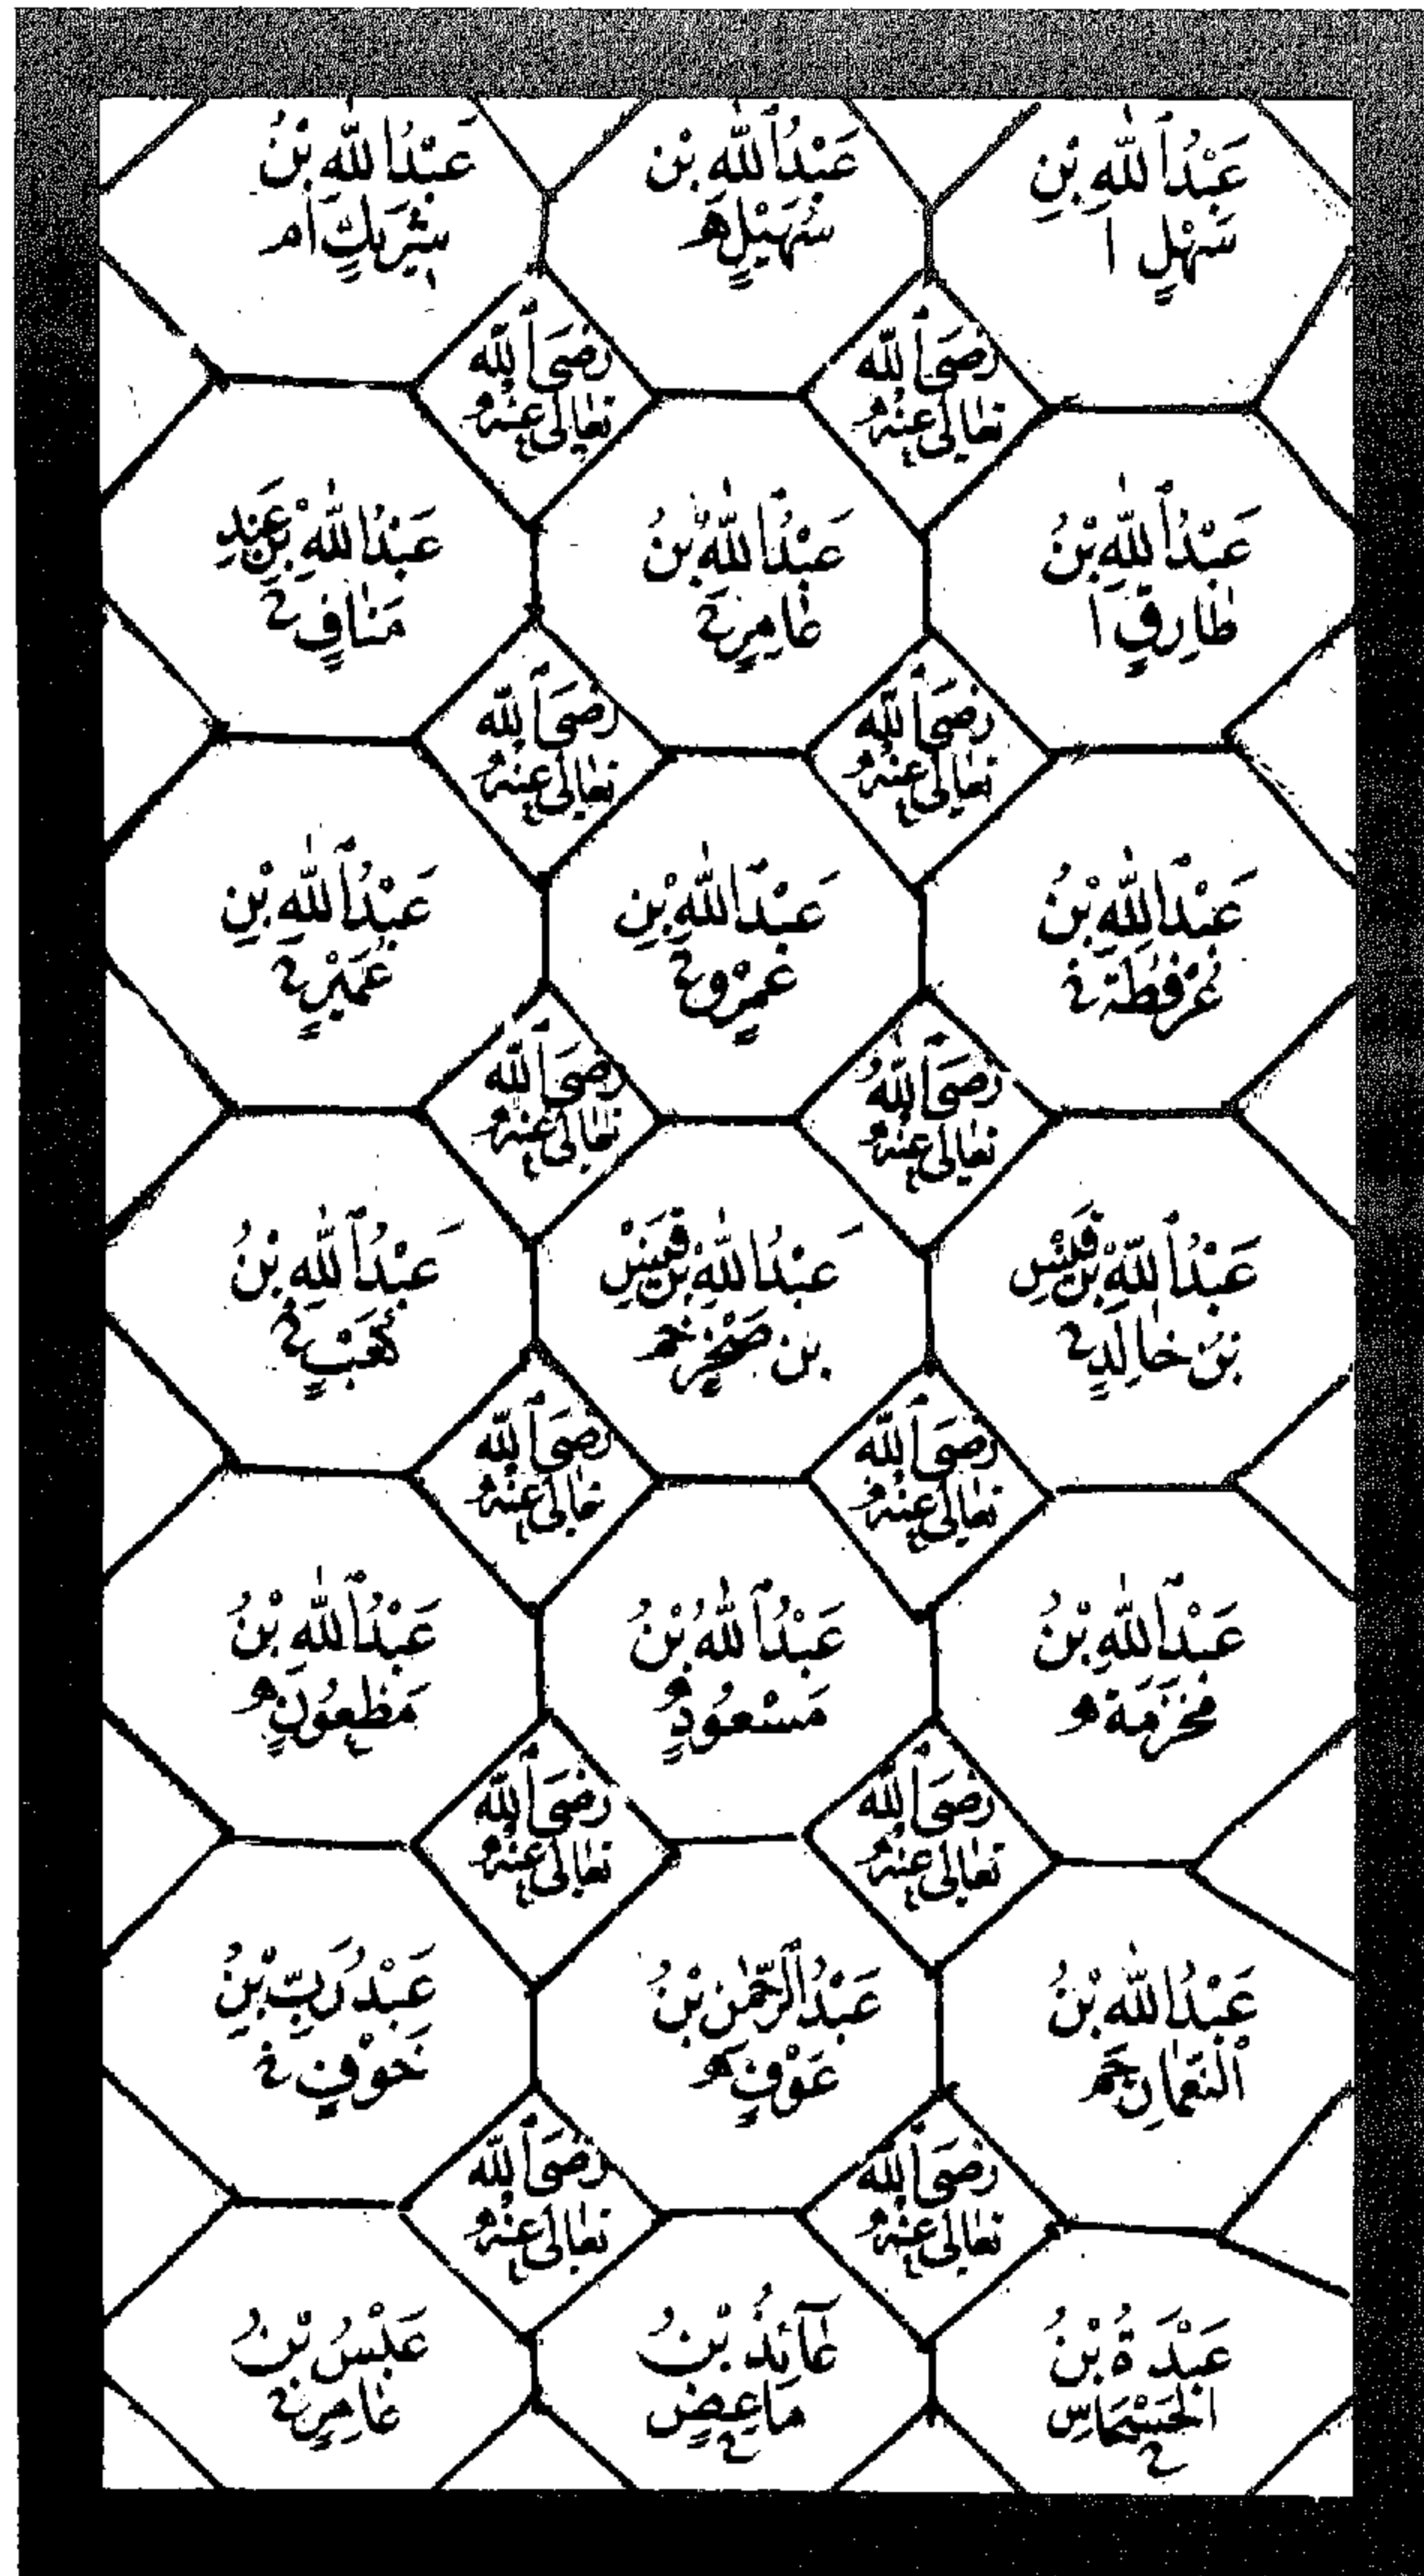 عَبْدُ ٱللّٰهِ بْنِ
سَهْلٍ ا
عَبْدُ ٱللّٰهِ بْن
سُهَيْلٍ ھ
عَبْدُ اللّٰهِ بْنُ
شَرِيكٍ ا م
رَضِىَ ٱللّٰه
تَعَالٰى عَنْهُ
رَضِىَ ٱللّٰه
تَعَالٰى عَنْهُ
عَبْدُ ٱللّٰهِ بْنُ
طَارِقٍ ا
عَبْدُ ٱللّٰهِ بْنُ
عَامِرٍ
عَبْدُ اللّٰهِ بْنُ عَبْدِ
مَنَافٍ
رَضِىَ ٱللّٰه
تَعَالٰى عَنْهُ
رَضِىَ ٱللّٰه
تَعَالٰى عَنْهُ
عَبْدُ ٱللّٰهِ بْنُ
عُرْفُطَةَ
عَبْدُ ٱللّٰهِ بْنِ
عَمْرٍو
عَبْدُ ٱللّٰهِ بْنِ
عُمَيْرٍ
رَضِىَ ٱللّٰهُ
تَعَالٰى عَنْهُ
رَضِىَ ٱللّٰه
تَعَالٰى عَنْهُ
عَبْدُ ٱللّٰهِ بْنُ قَيْسِ
بْنِ خَالِدٍ
عَبْدُ اللّٰهِ بْنُ قَيْسِ
بْن صَخْرٍ
عَبْدُ ٱللّٰهِ بْنُ
كَعْبٍ
رَضِىَ ٱللّٰه
تَعَالٰى عَنْهُ
رَضِىَ ٱللّٰه
تَعَالٰى عَنْهُ
عَبْدُ ٱللّٰهِ بْنُ
مَخْرَمَةَ
عَبْدُ ٱللّٰهِ بْنُ
مَسْعُودٍ
عَبْدُ ٱللّٰهِ بْنُ
مَظْعُونٍ
رَضِىَ ٱللّٰه
تَعَالٰى عَنْهُ
رَضِىَ ٱللّٰه
تَعَالٰى عَنْهُ
عَبْدُ اللّٰهِ بْنُ
ٱلنُّعْمَانِ
عَبْدُ ٱلرَّحْمٰنِ بْنُ
عَوْفٍ
عَبْدُ رَبِّ بْنُ
حَوْفٍ
رَضِىَ ٱللّٰه
تَعَالٰى عَنْهُ
رَضِىَ ٱللّٰه
تَعَالٰى عَنْهُ
عَبْدَةُ بْنُ
الْحَسْحَاسِ
عَآئِذُ بْنُ
مَاعِصٍ
عَبْسُ بْنُ
عَامِرٍ